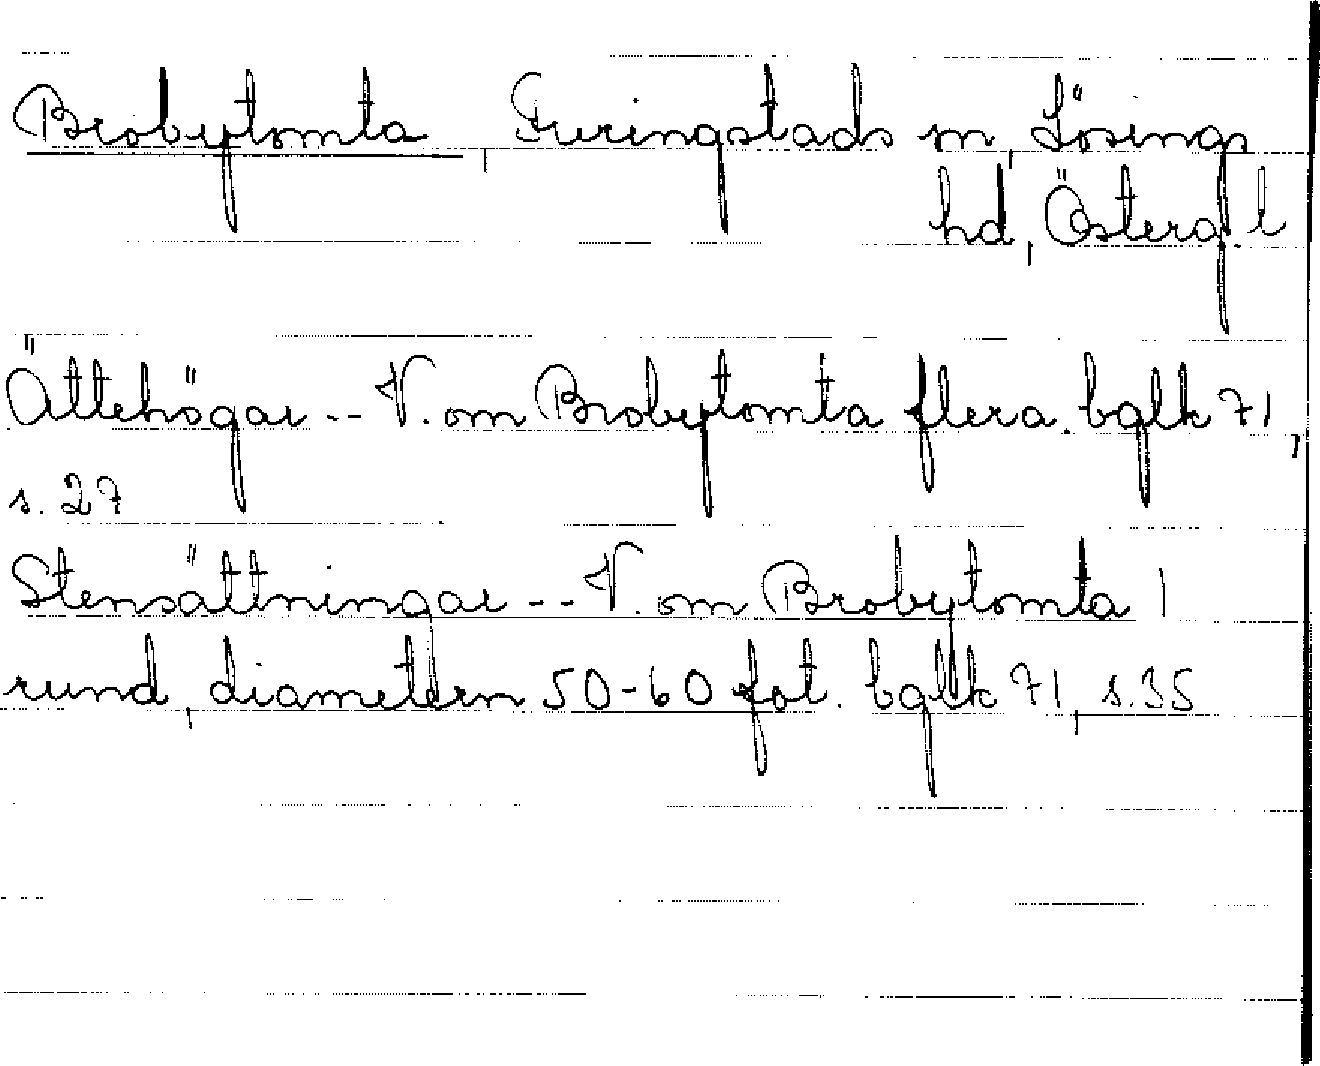 Brobytomta, Furingstads sn, Lösings
hd, Österg.l
Ättehögar -- V. om Brobytomta flera. bglk 71,
s. 27
Stensättningar -- V. om Brobytomta 1
rund, diametern 50-60 fot. bglk 71, s. 35